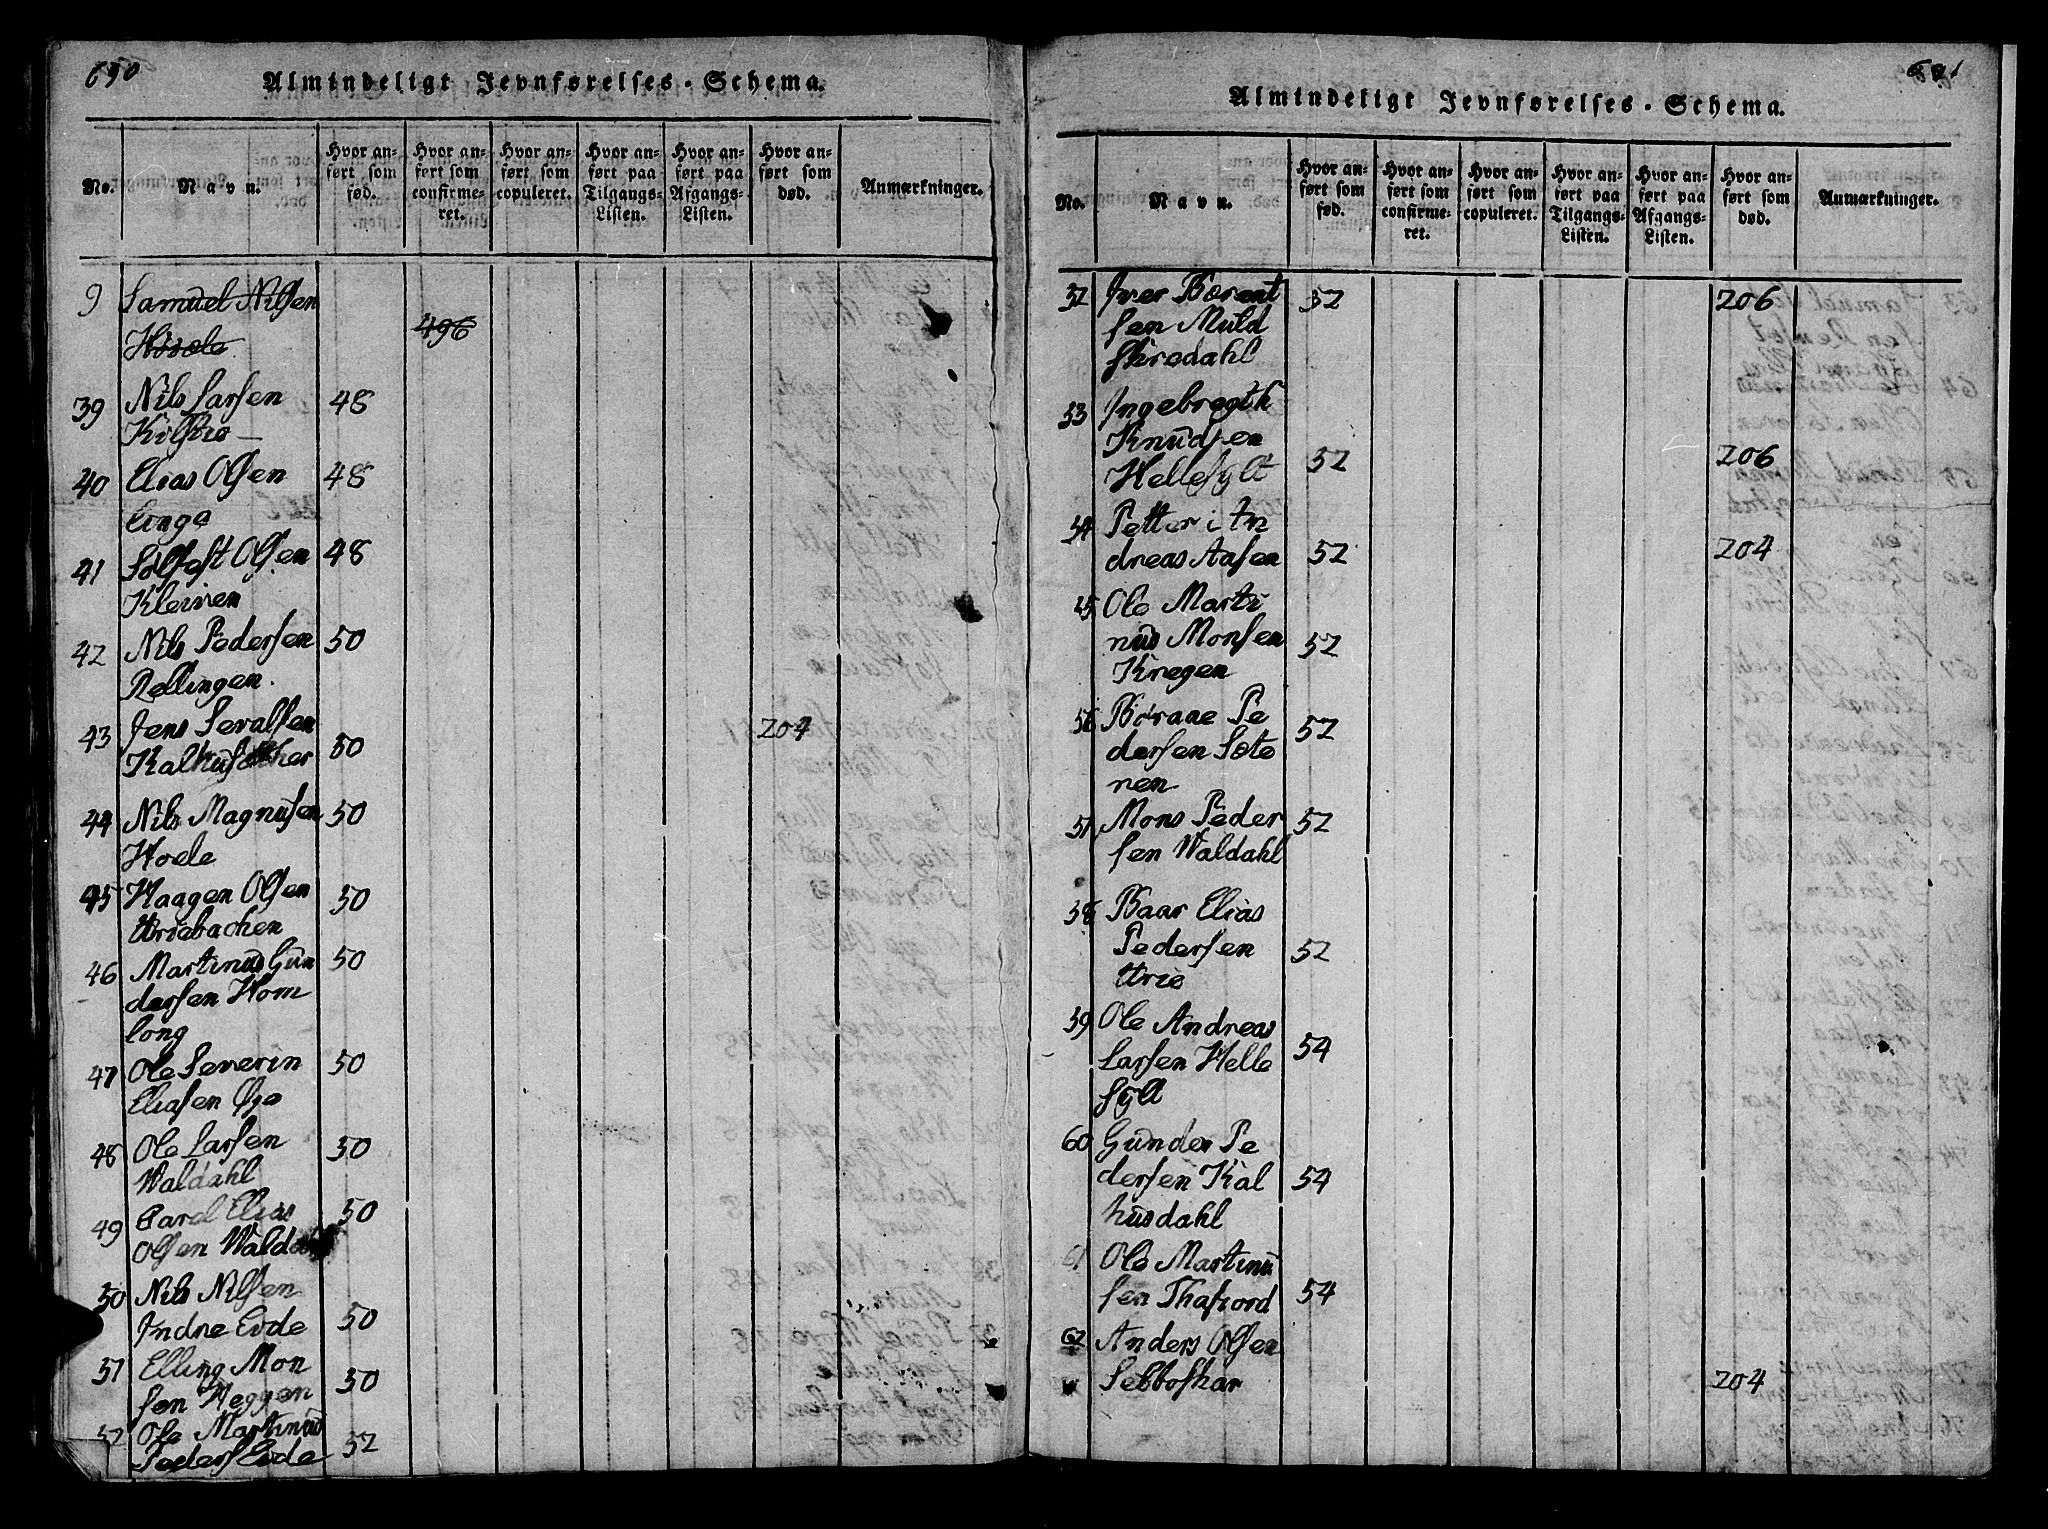 690
Almindeligt Jevnførelses-Schema.
No.
Navn.
Hvor anført som fød.
Hvor anført som confirmeret.
Hvor anført som copuleret.
Hvor anført paa Tilgangs-Listen.
Hvor anført paa Afgangs-Listen.
Hvor anført som død.
Anmærkninger.
9 Samuel Nilsen
496
39 Nils Larsen 48
40 Elias Olsen 48
Linge
41 Sølfest Olsen 48
Kleiven
42 Nils Pedersen 50
Rellingen.
43 Jens Sevalsen 204
50
44 Nils Magnusen 50
Hoele
45 Haagen Olsen 50
Uriebachen
46 Martinus Gun 50
dersen Hom
long
47 Ole Severin 50
Eliasen Øje
48 Ole Larsen 50
Waldahl
49 Carel Elias 50
Olsen
50 Nils Nilsen
Indre Eide 50
51 Elling Mon
sen Heggen 50
52 Ole Martinus
Peders Eide 52
691
Almindeligt Jevnførelses-Schema.
No.
Navn.
Hvor anført som fød.
Hvor anført som confirmeret.
Hvor anført som copuleret.
Hvor anført paa Tilgangs-Listen.
Hvor anført paa Afgangs-Listen.
Hvor anført som død.
Anmærkninger.
52 Iver Børent 52 206
sen Muld
skredahl
53 Ingebregth
Knudsen
Hellesylt 52 206
54 Petter i An
dreas Aasen 52 204
55 Ole Marti
nus Monsen 52
Kregen
56 Børaae Pe 52
dersen Sæte
nen
57 Mons Peder 52
sen Waldahl
58 Baar Elias
Pedersen 52
Urie
59 Ole Andreas
Larsen Helle 54
sylt
60 Gunder Pe
dersen Kal 54
husdahl
61 Ole Martinu
sen Thafiord 54
62 Anders Olsen
204